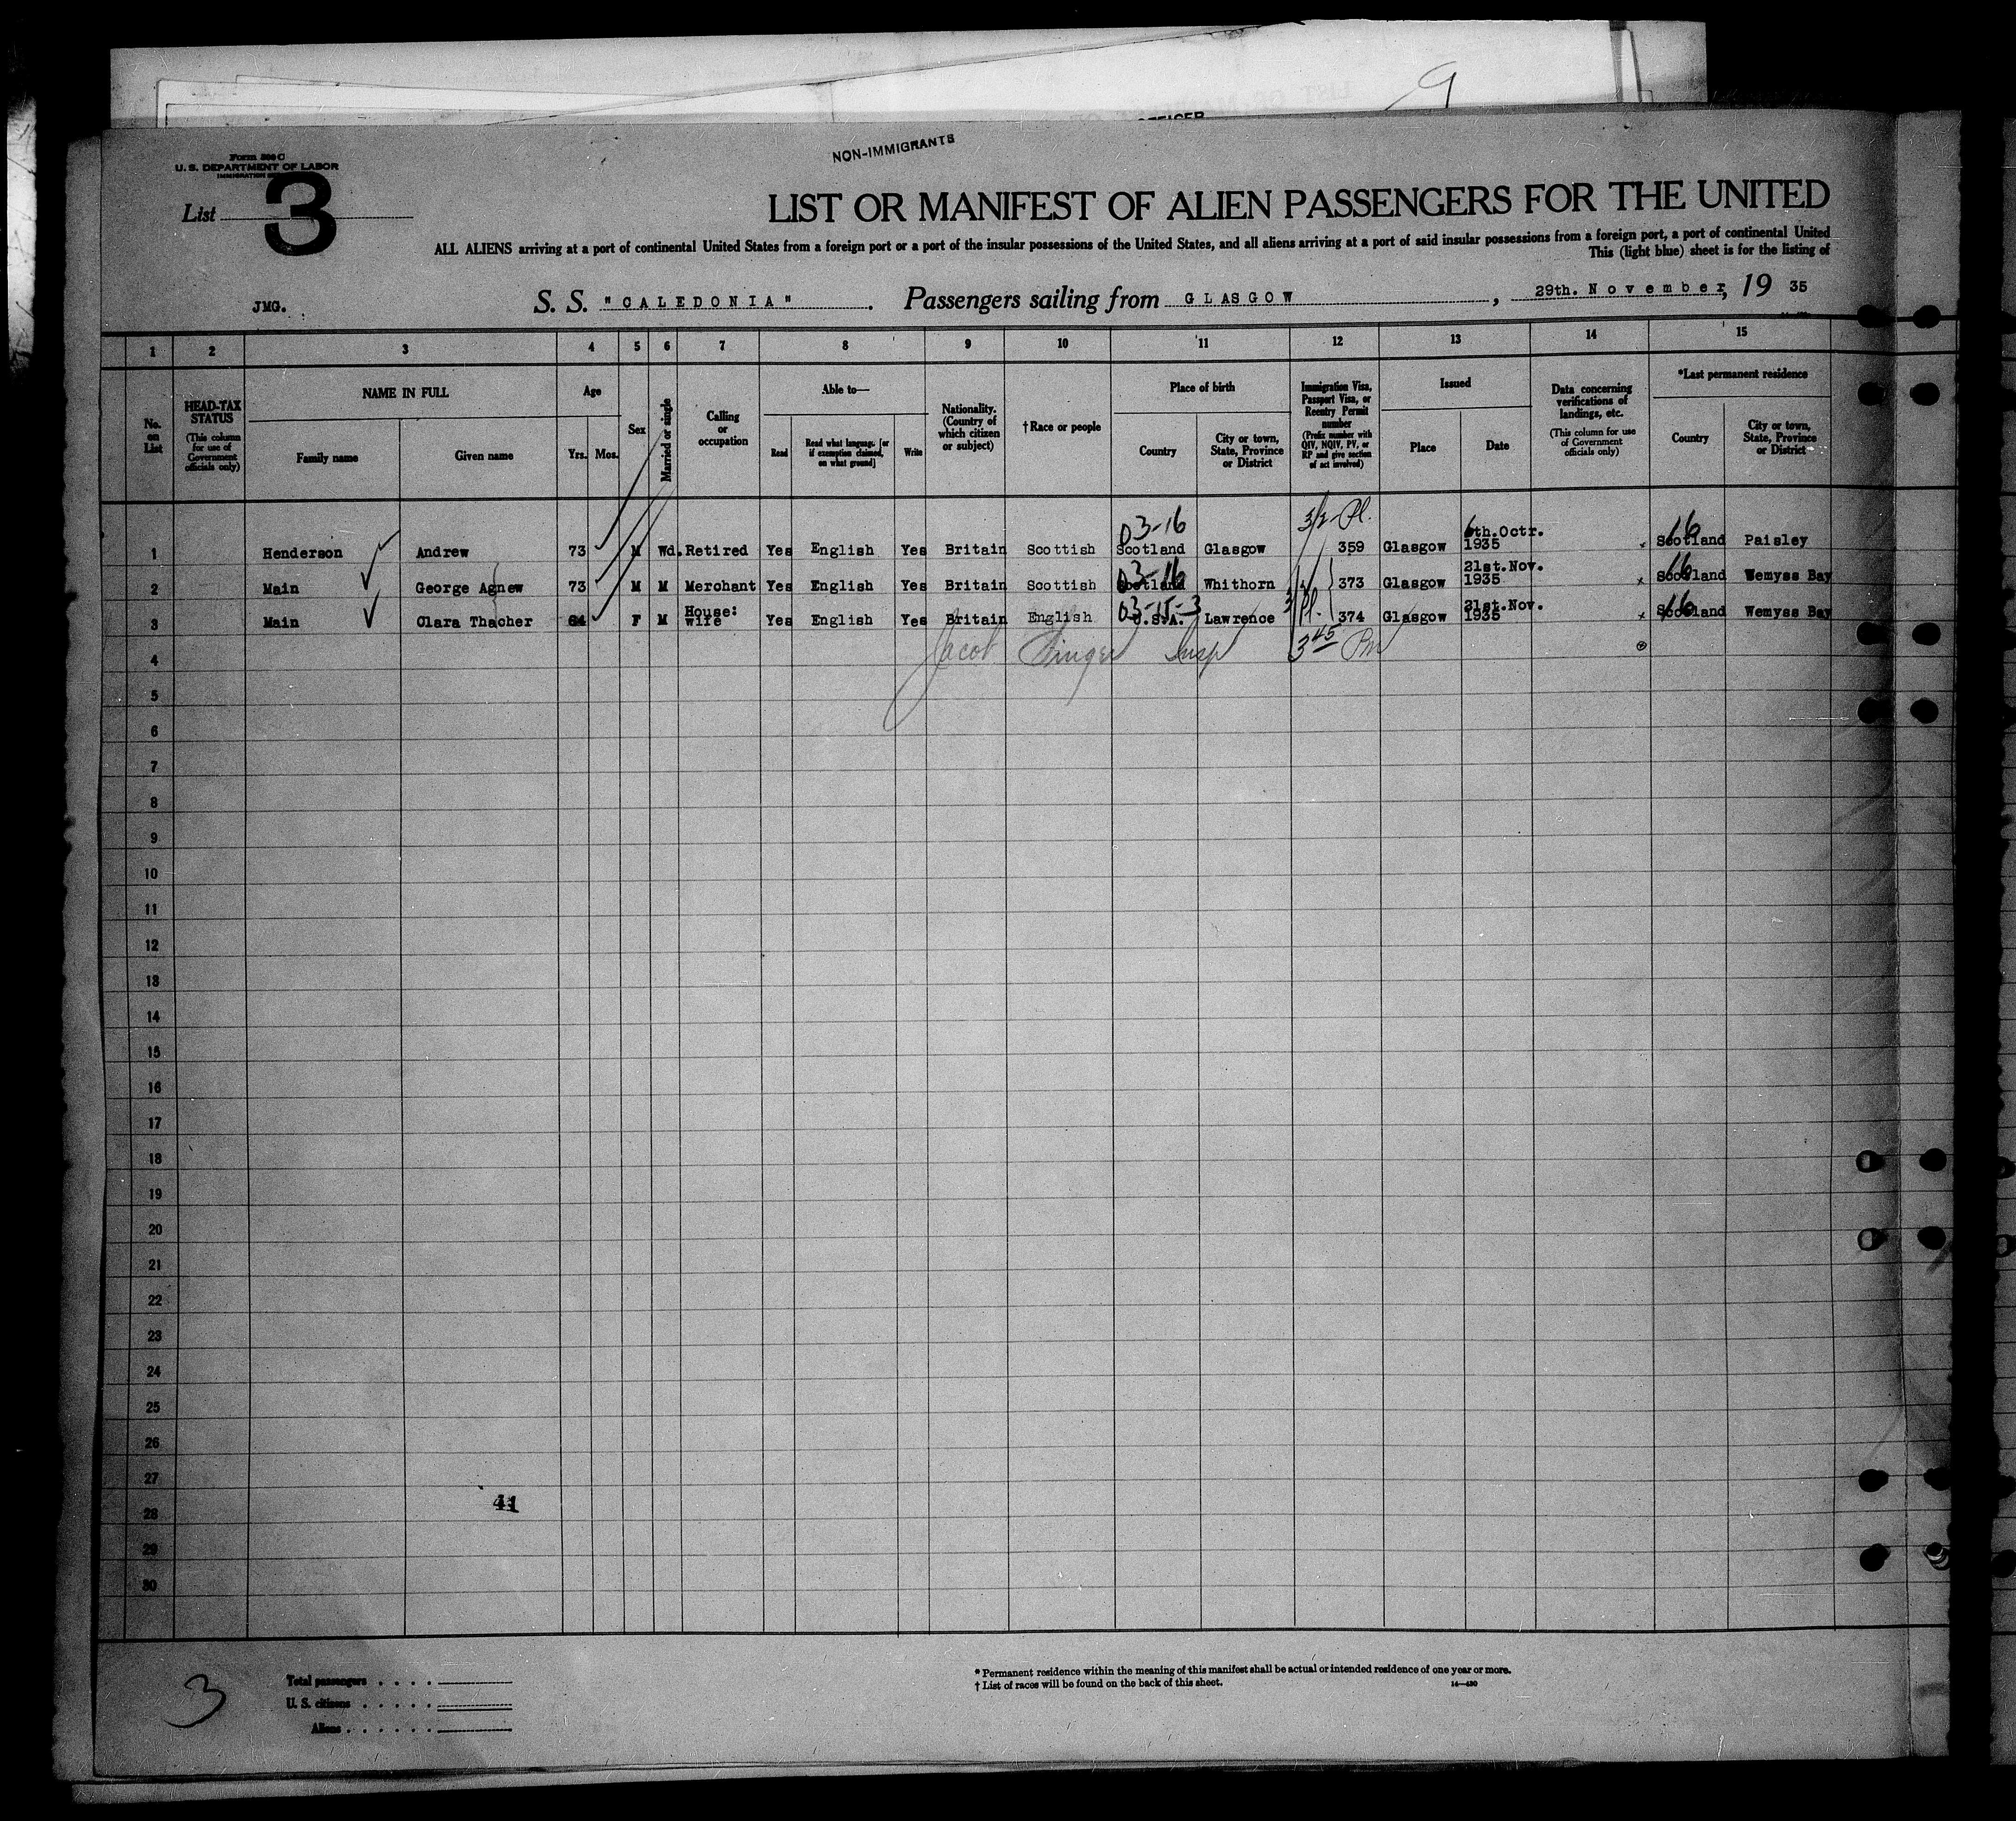 9
NON-IMMIGRANTS
Form 500 C
U. S. DEPARTMENT OF LABOR
List 3
LIST OR MANIFEST OF ALIEN PASSENGERS FOR THE UNITED
ALL ALIENS arriving at a port of continental United States from a foreign port or a port of the insular possessions of the United States, and all aliens arriving at a port of said insular possessions from a foreign port, a port of continental United
This (light blue) sheet is for the listing of
JMG. S. S. "CALEDONIA". Passengers sailing from GLASGOW, 29th. November, 19 35
1 2 3 4 5 6 7 8 9 10 11 12 13 14 15
No. on List
HEAD-TAX STATUS (This column for use of Government officials only)
NAME IN FULL Family name Given name
Age Yrs. Mos.
Sex
Married or single
Calling or occupation
Able to— Read Read what language [or if exemption claimed, on what ground] Write
Nationality. (Country of which citizen or subject)
†Race or people
Place of birth Country City or town, State, Province or District
Immigration Visa, Passport Visa, or Reentry Permit number (Prefix number with QIV, NQIV, PV, or RP and give section of act involved)
Issued Place Date
Data concerning verifications of landings, etc. (This column for use of Government officials only)
*Last permanent residence Country City or town, State, Province or District
03-16 3/2 Pl. 16
1 Henderson Andrew 73 M Wd. Retired Yes English Yes Britain Scottish Scotland Glasgow 359 Glasgow 6th.Octr. 1935 x Scotland Paisley
03-16 16
2 Main George Agnew 73 M M Merchant Yes English Yes Britain Scottish Scotland Whithorn 373 Glasgow 21st.Nov. 1935 x Scotland Wemyss Bay
03-15-3 3/2 Pl. 16
3 Main Clara Thacher 64 F M House: wife Yes English Yes Britain English U.S.A. Lawrence 374 Glasgow 21st.Nov. 1935 x Scotland Wemyss Bay
4 Jacob Singer Insp 3 45 Pm
5
6
7
8
9
10
11
12
13
14
15
16
17
18
19
20
21
22
23
24
25
26
27
28 41
29
30
3
Total passengers . . . .
U. S. citizens . . . . .
Aliens . . . . . .
* Permanent residence within the meaning of this manifest shall be actual or intended residence of one year or more.
† List of races will be found on the back of this sheet. 14—430